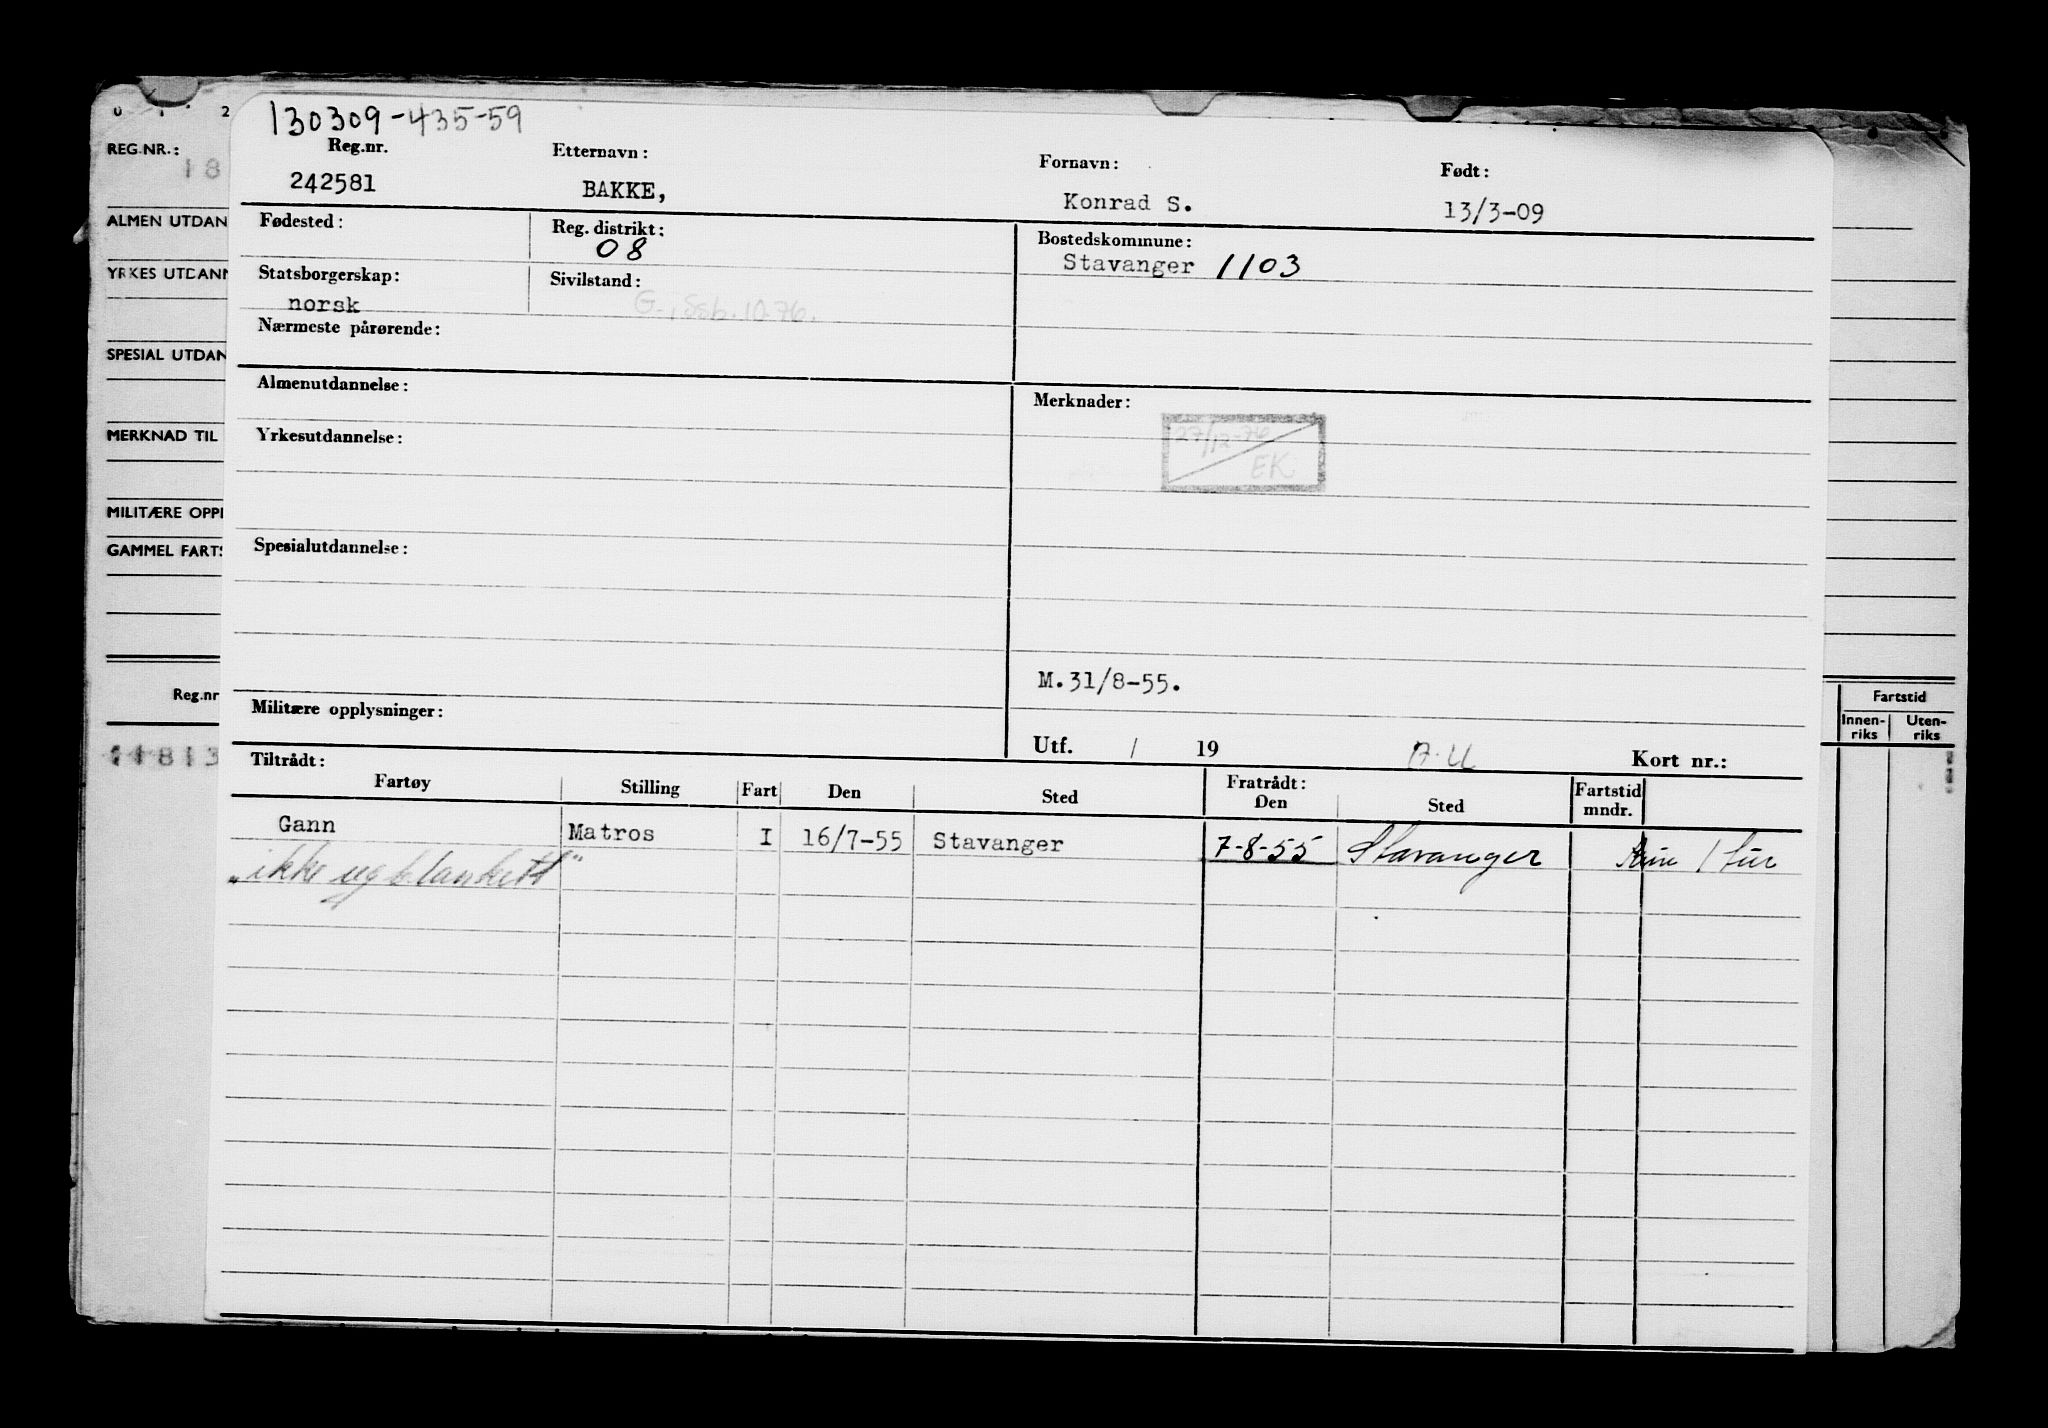 0 1 2
REG.NR.:
18
ALMEN UTDAN
YRKES UTDANN
SPESIAL UTDAN
MERKNAD TIL
MILITÆRE OPPL
GAMMEL FARTS
Reg.nr
Fartstid
Innen-riks Uten-riks
130309-435-59
Reg.nr. Etternavn: Fornavn: Født:
242581 BAKKE, Konrad S. 13/3-09
Fødested: Reg. distrikt: 08 Bostedskommune:
Stavanger 1103
Statsborgerskap: Sivilstand:
norsk G., Ssb. 10.76.
Nærmeste pårørende:
Almenutdannelse: Merknader:
27/12-76
EK
Yrkesutdannelse:
Spesialutdannelse:
M.31/8-55.
Militære opplysninger:
Utf. / 19 Kort nr.:
Tiltrådt: Fratrådt: Fartstid
Fartøy Stilling Fart Den Sted Den Sted mndr.
Gann Matros I 16/7-55 Stavanger 7-8-55 Stavanger 1 tur
"ikke ug blankett"